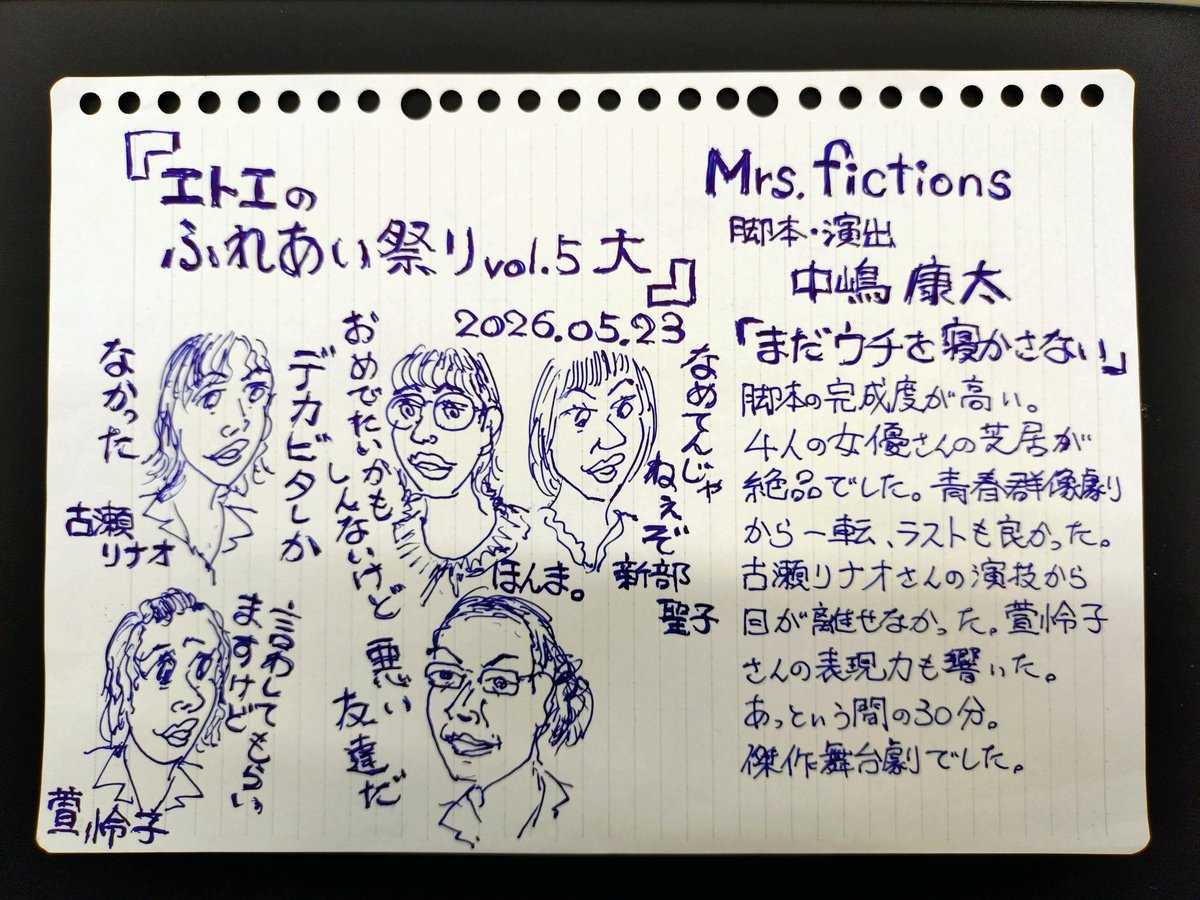 『エトエの
ふれあい祭りvol.5 大』
2026.05.23
Mrs.fictions
脚本・演出
中嶋 康太
「まだウチを寝かさない」
脚本の完成度が高い。
4人の女優さんの芝居が
絶品でした。青春群像劇
から一転、ラストも良かった。
古瀬リナオさんの演技から
目が離せなかった。萱怜子
さんの表現力も響いた。
あっという間の30分。
傑作舞台劇でした。
デカビタしか
なかった
古瀬
リナオ
おめでたいかも
しんないけど
ほんま。
なめてんじゃ
ねぇぞ
新部
聖子
言わしてもらい
ますけど
萱怜子
悪い
友達だ